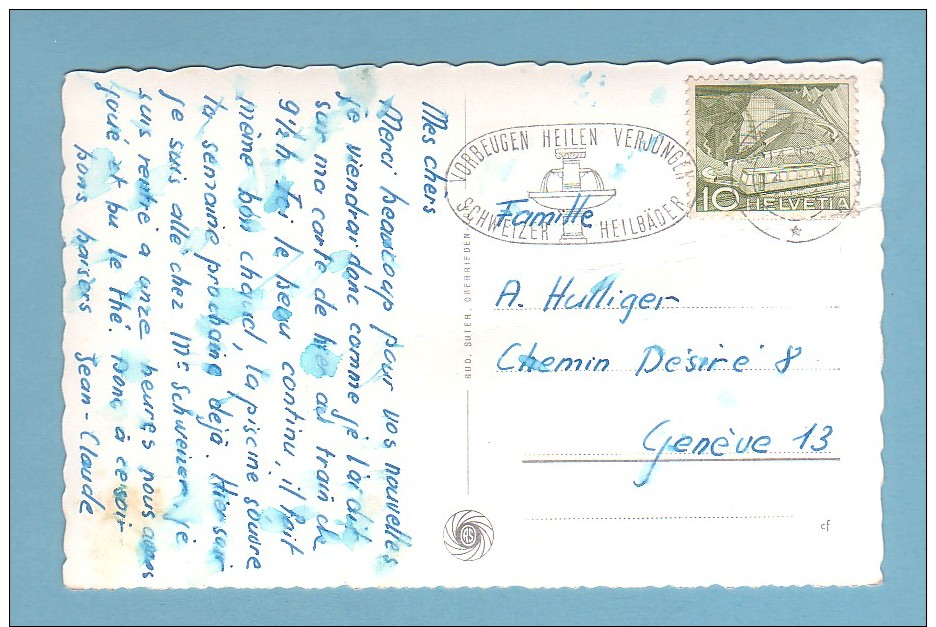 Mes chers
Merci beaucoup pour vos nouvelles
je viendrai donc comme je l'ai dit
sur ma carte de hier au train de
9½ h. Ici le beau continu, il fait
même bon chaud, la piscine s'ouvre
la semaine prochaine déjà. Hier soir
je suis allé chez Mr Schweizer je
suis rentré a onze heures nous avons
joué et bu le thé. Donc à ce soir
bons baisers Jean-Claude
VORBEUGEN HEILEN VERJÜNGEN
SCHWEIZER HEILBÄDER
10 HELVETIA
Famille
A. Hulliger
Chemin Désiré 8
Genève 13
RUD. SUTER, OBERRIEDEN-
cf